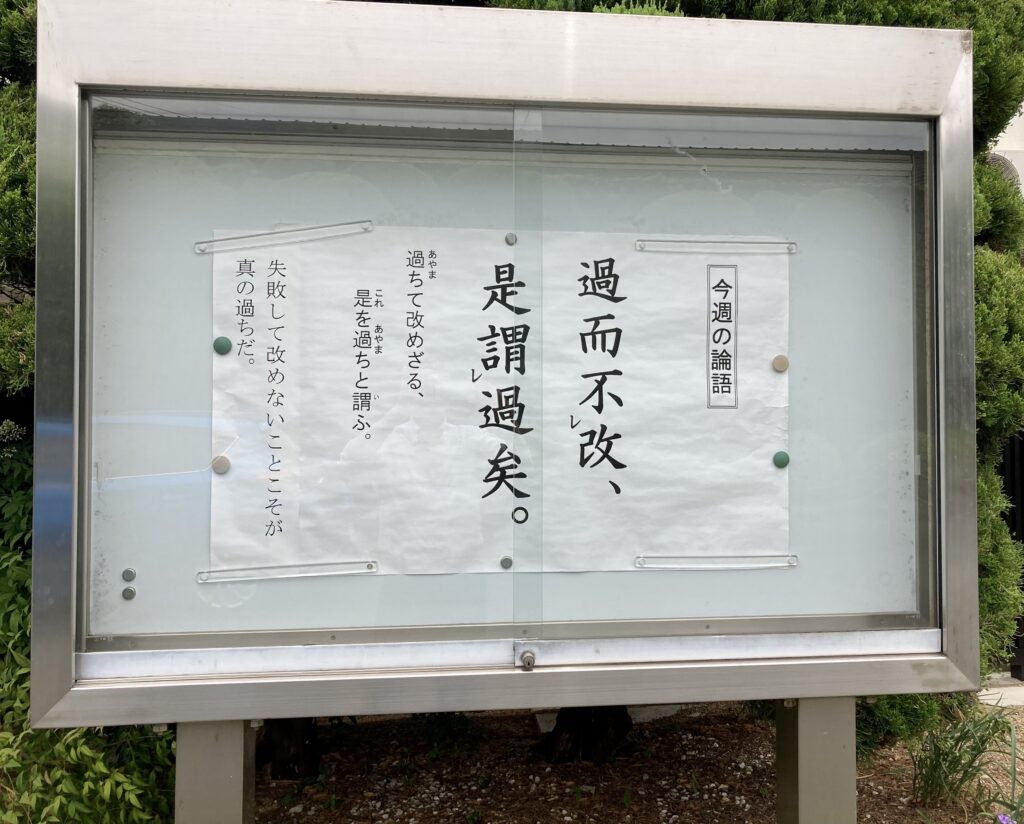 今週の論語
過而不レ改、
是謂レ過矣。
過ちて改めざる、
あやま
是を過ちと謂ふ。
これ あやま い
失敗して改めないことこそが
真の過ちだ。